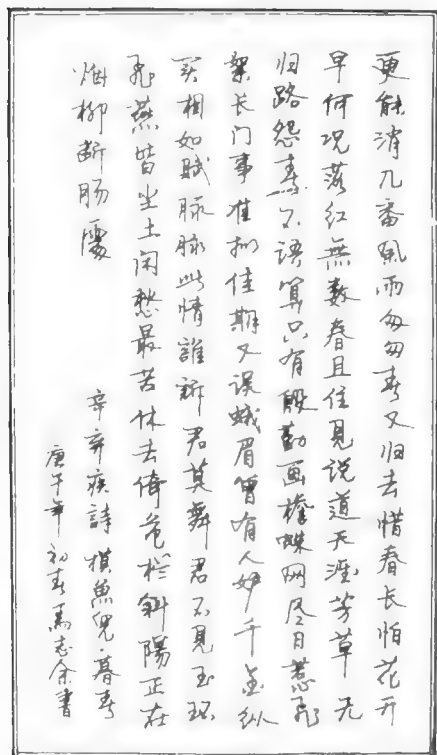 更能消几番風雨匆匆春又归去惜春长怕花开
早何况落红無数春且住見说道天涯芳草无
归路怨春不语算只有殷勤画檐蛛网尽日惹飛
絮长门事准拟佳期又误蛾眉曾有人妒千金纵
买相如赋脉脉此情誰訴君莫舞君不見玉环
飛燕皆尘土闲愁最苦休去倚危栏斜陽正在
烟柳断肠處
辛弃疾詩摸魚兒·暮春
庚午年初春馬志余書